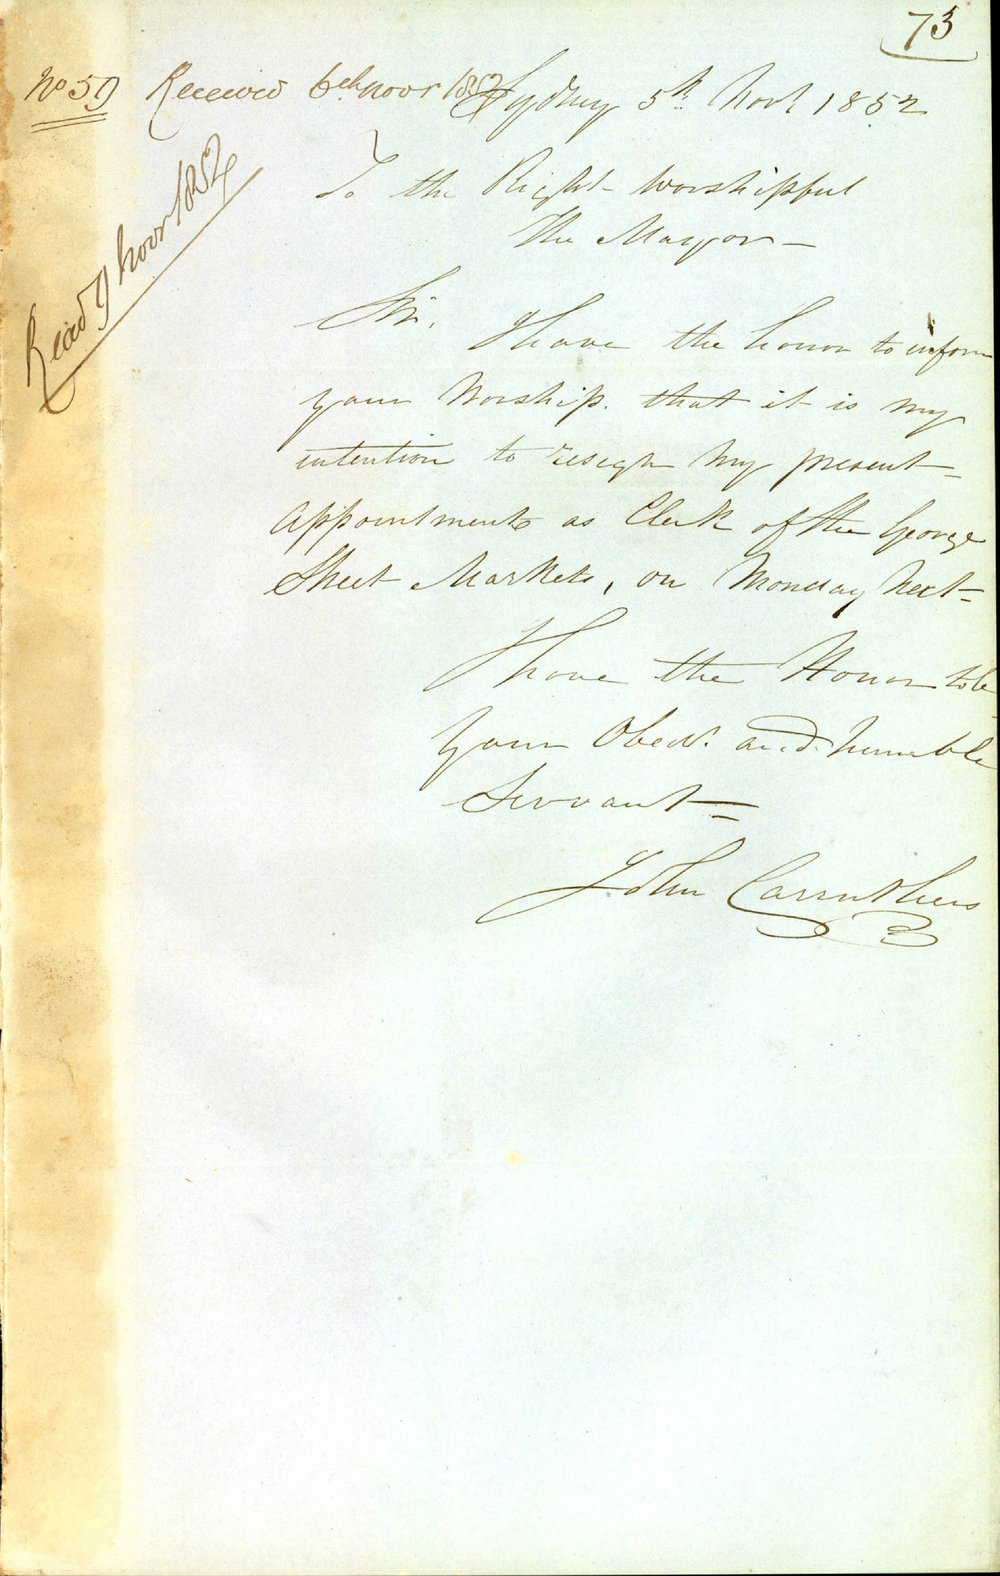 73
No 59 Received 6th Novr 1852
Sydney 5th Novr 1852
Read 9 Novr 1852
To the Right Worshipful
The Mayor —
Sir,
I have the honor to inform
your Worship. that it is my
intention to resign my present
Appointment as Clerk of the George
Street Markets, on Monday Next
I have the Honor to be
Your Obedt. and humble
Servant
John Carruthers